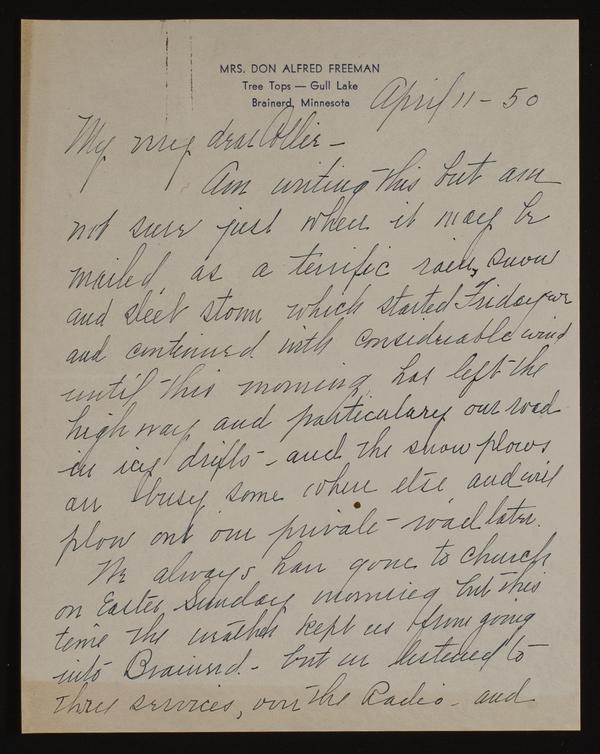 MRS. DON ALFRED FREEMAN
Tree Tops — Gull Lake
Brainerd, Minnesota
April 11 - 50
My very dear Ollie -
Am writing this but am
not sure just when it may be
mailed, as a terrific rain, snow
and sleet storm which started Friday eve
and continued with considerable wind
until this morning, has left the
high way and particulary our road
in icy drifts - and the snow plows
are busy some where else and will
plow out our private - road later.
We always have gone to church
on Easter Sunday morning but this
time the weather kept us from going
into Brainerd - but we listened to
three services, over the Radio - and